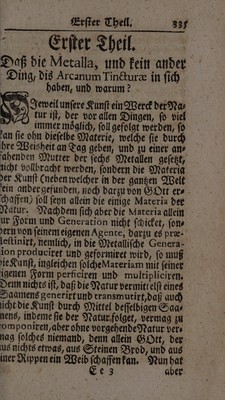 Erster Theil. 335
Erster Theil.
Daß die Metalla, und kein ander
Ding, dis Arcanum Tincturæ in sich
haben, und warum?
Jeweil unsere Kunst ein Werck der Na-
tur ist, der vor allen Dingen, so viel
immer möglich, soll gefolget werden, so
kan sie ohn dieselbe Materie, welche sie durch
ihre Weisheit an Tag geben, und zu einer an-
fahenden Mutter der sechs Metallen gesetzt,
nicht vollbracht werden, sondern die Materia
der Kunst (neben welcher in der gantzen Welt
kein ander gefunden, noch darzu von GOtt er-
schaffen) soll seyn allein die einige Materia der
Natur. Nachdem sich aber die Materia allein
zur Form und Generation nicht schicket, son-
dern von seinem eigenen Agente, darzu es præ-
destinirt, nemlich, in die Metallische Genera-
tion produciret und geformiret wird, so muß
die Kunst, ingleichen solche Materiam mit seiner
eigenen Form perficiren und multipliciren.
Denn nichts ist, daß die Natur vermittelst eines
Saamens generirt und transmutirt, daß auch
nicht die Kunst durch Mittel desselbigen Saa-
mens, indeme sie der Natur folget, vermag zu
componiren, aber ohne vorgehende Natur ver-
mag solches niemand, denn allein GOtt, der
aus nichts etwas, aus Steinen Brod, und aus
einer Rippen ein Weib schaffen kan. Nun hat
Ee 3 aber